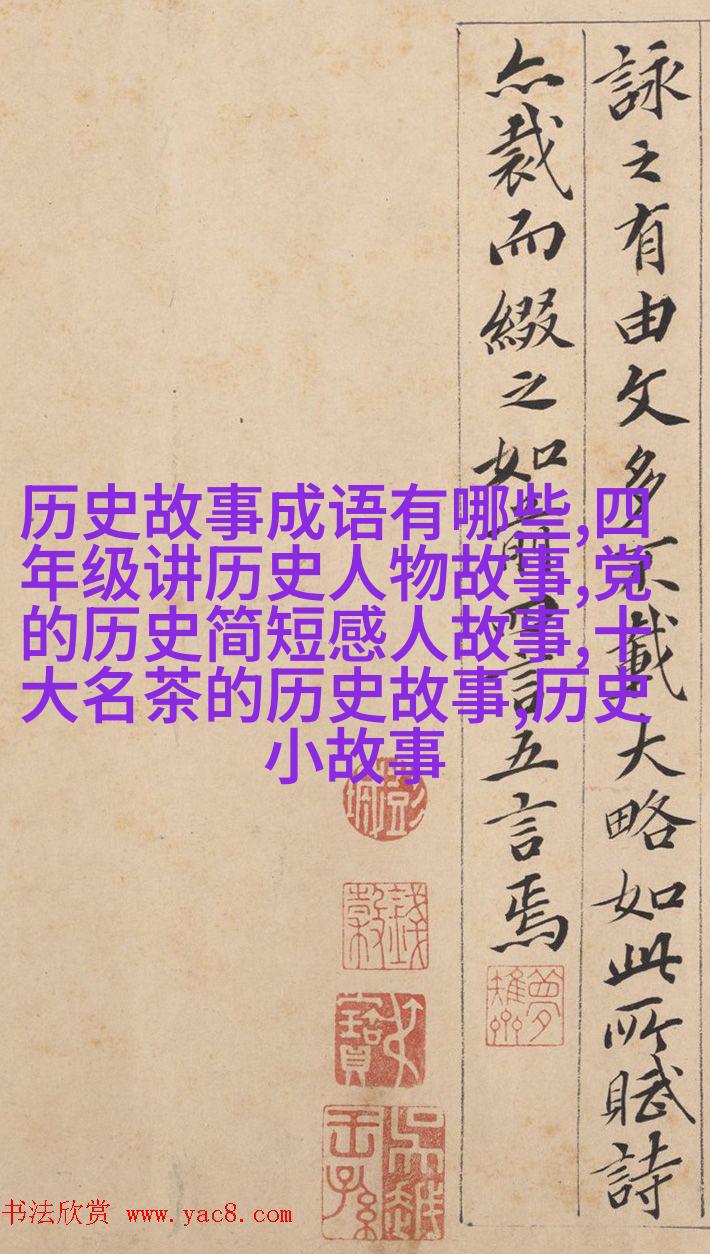 詠之有由文多不載大略如此所賦詩
亦裁而綴之如前四言五言焉
历史故事成语有哪些,四
年级讲历史人物故事,党
的历史简短感人故事,十
大名茶的历史故事,历史
小故事
吳越王孫
书法欣赏 www.yac8.com